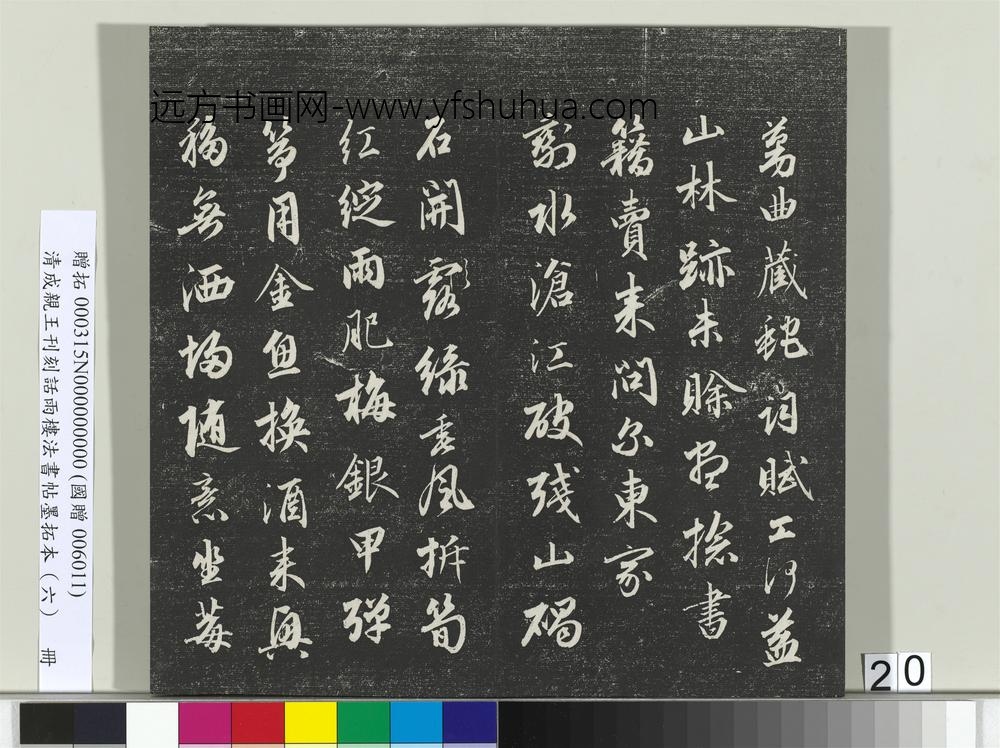 贈拓 000315N000000000(國贈 006011)
清成親王刊刻話雨樓法書帖墨拓本（六） 冊
远方书画网-www.yfshuhua.com
蔓曲藏虵詞賦工何益
山林跡未賒盡捻書
籍賣来問尓東家
剩水滄江破殘山碣
石開露綠垂風折筍
紅綻雨肥梅銀甲彈
箏用金魚換酒来興
移無洒埽随意坐莓
20